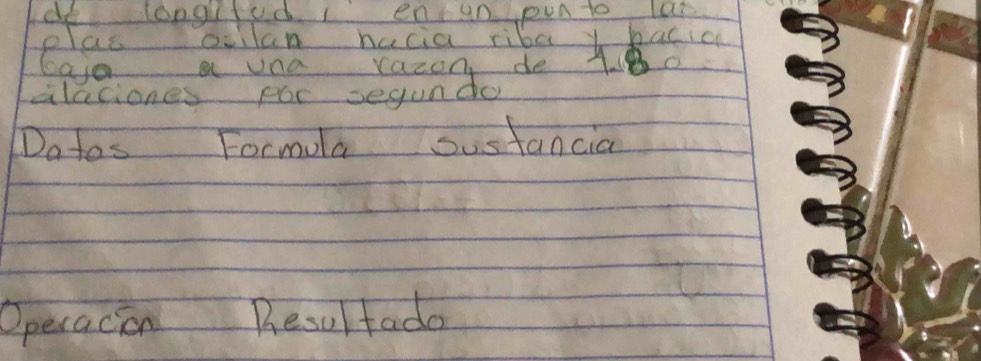 de longitud, en un punto las
olas osilan hacia riba y hacia
baja a una razon de 1.8 o
cilaciones por segundo
Datos Formula Sustancia
Operacion Resultado